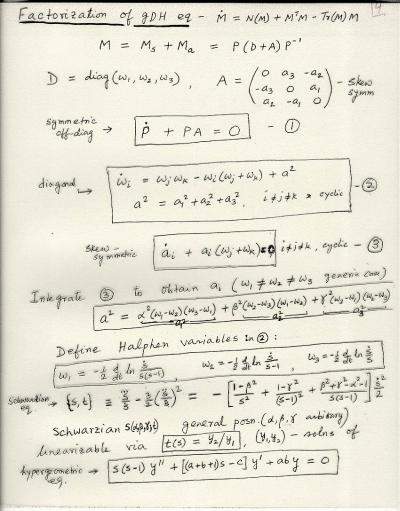 Factorization of gDH eq - Ṁ = N(M) + MᵀM - Tr(M)M
M = Mₛ + Mₐ = P(D+A)P⁻¹
D = diag(ω₁, ω₂, ω₃), A = ( 0 a₃ -a₂ ; -a₃ 0 a₁ ; a₂ -a₁ 0 ) - skew symm
symmetric off-diag → Ṗ + PA = 0 - ①
diagonal → ω̇ᵢ = ωⱼωₖ - ωᵢ(ωⱼ+ωₖ) + a²
a² = a₁² + a₂² + a₃², i≠j≠k cyclic - ②
skew-symmetric ȧᵢ + aᵢ(ωⱼ+ωₖ) = 0 i≠j≠k, cyclic - ③
Integrate ③ to obtain aᵢ (ω₁ ≠ ω₂ ≠ ω₃ generic case)
a² = α²(ω₁-ω₂)(ω₃-ω₁) + β²(ω₂-ω₃)(ω₁-ω₂) + γ²(ω₃-ω₁)(ω₂-ω₃)
a₁² a₂² a₃²
Define Halphen variables in ②:
ω₁ = -½ d/dt ln ṡ/s(s-1), ω₂ = -½ d/dt ln ṡ/s-1, ω₃ = -½ d/dt ln ṡ/s
Schwarzian eq → {s,t} ≡ s⃛/ṡ - 3/2(s̈/ṡ)² = - [ 1-β²/s² + 1-γ²/(s-1)² + β²+γ²-α²-1/s(s-1) ] ṡ²/2
Schwarzian S(α,β,γ,t) general posn. (α,β,γ arbitrary)
linearizable via t(s) = y₂/y₁, (y₁,y₂) - solns of
hypergeometric eq. → s(s-1)y″ + [(a+b+1)s - c]y′ + aby = 0